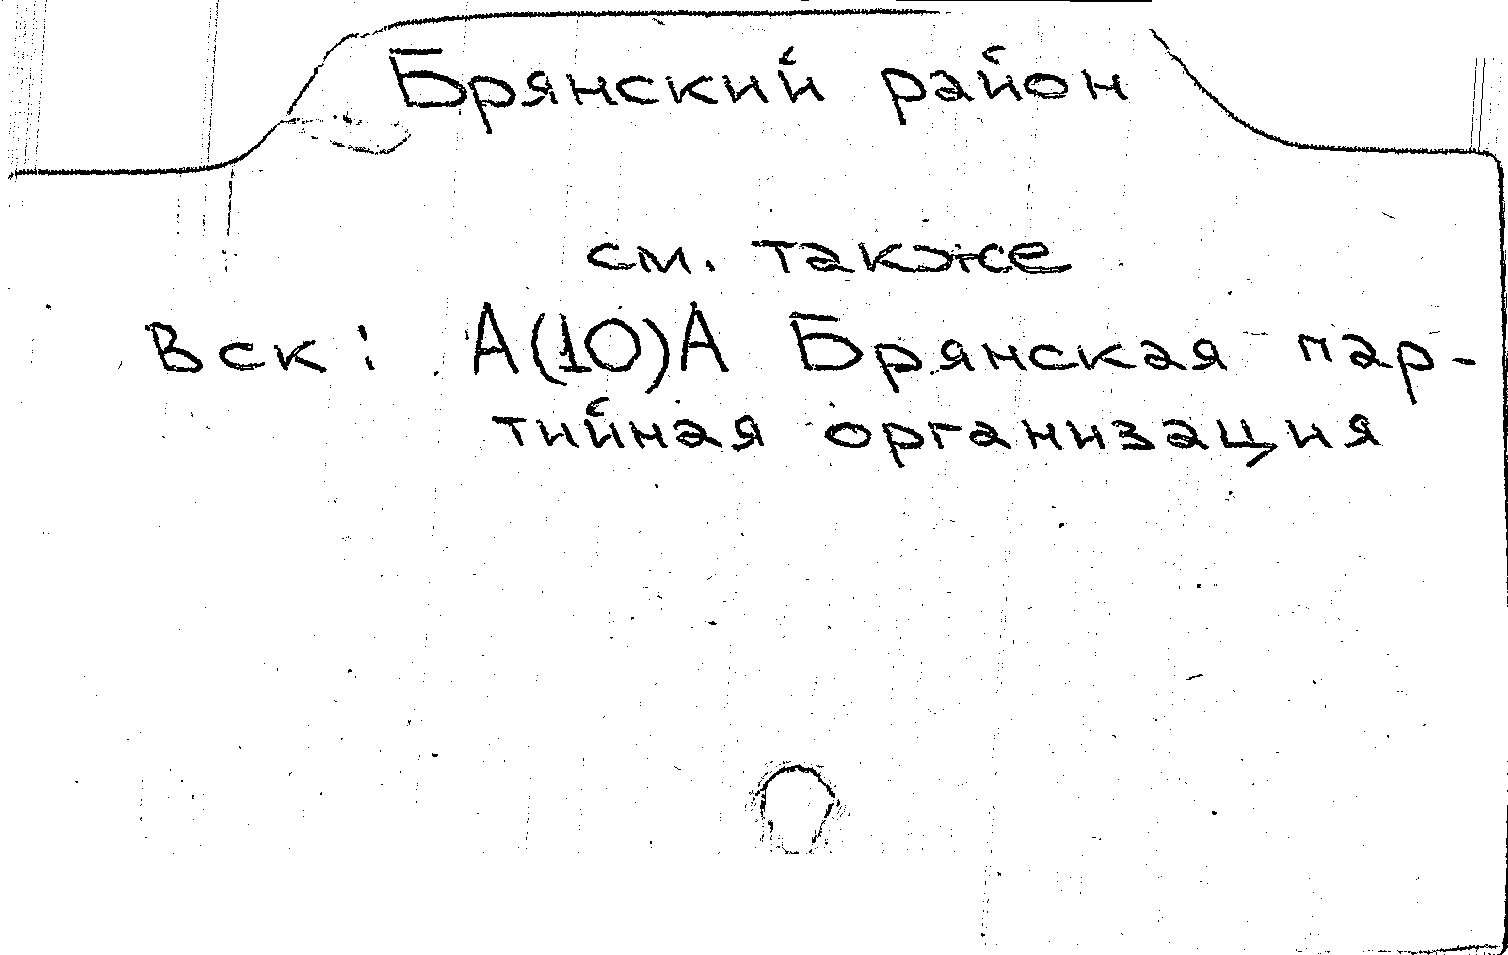 Брянский район
см. также
Вск: А(10)А Брянская пар-
тийная организация